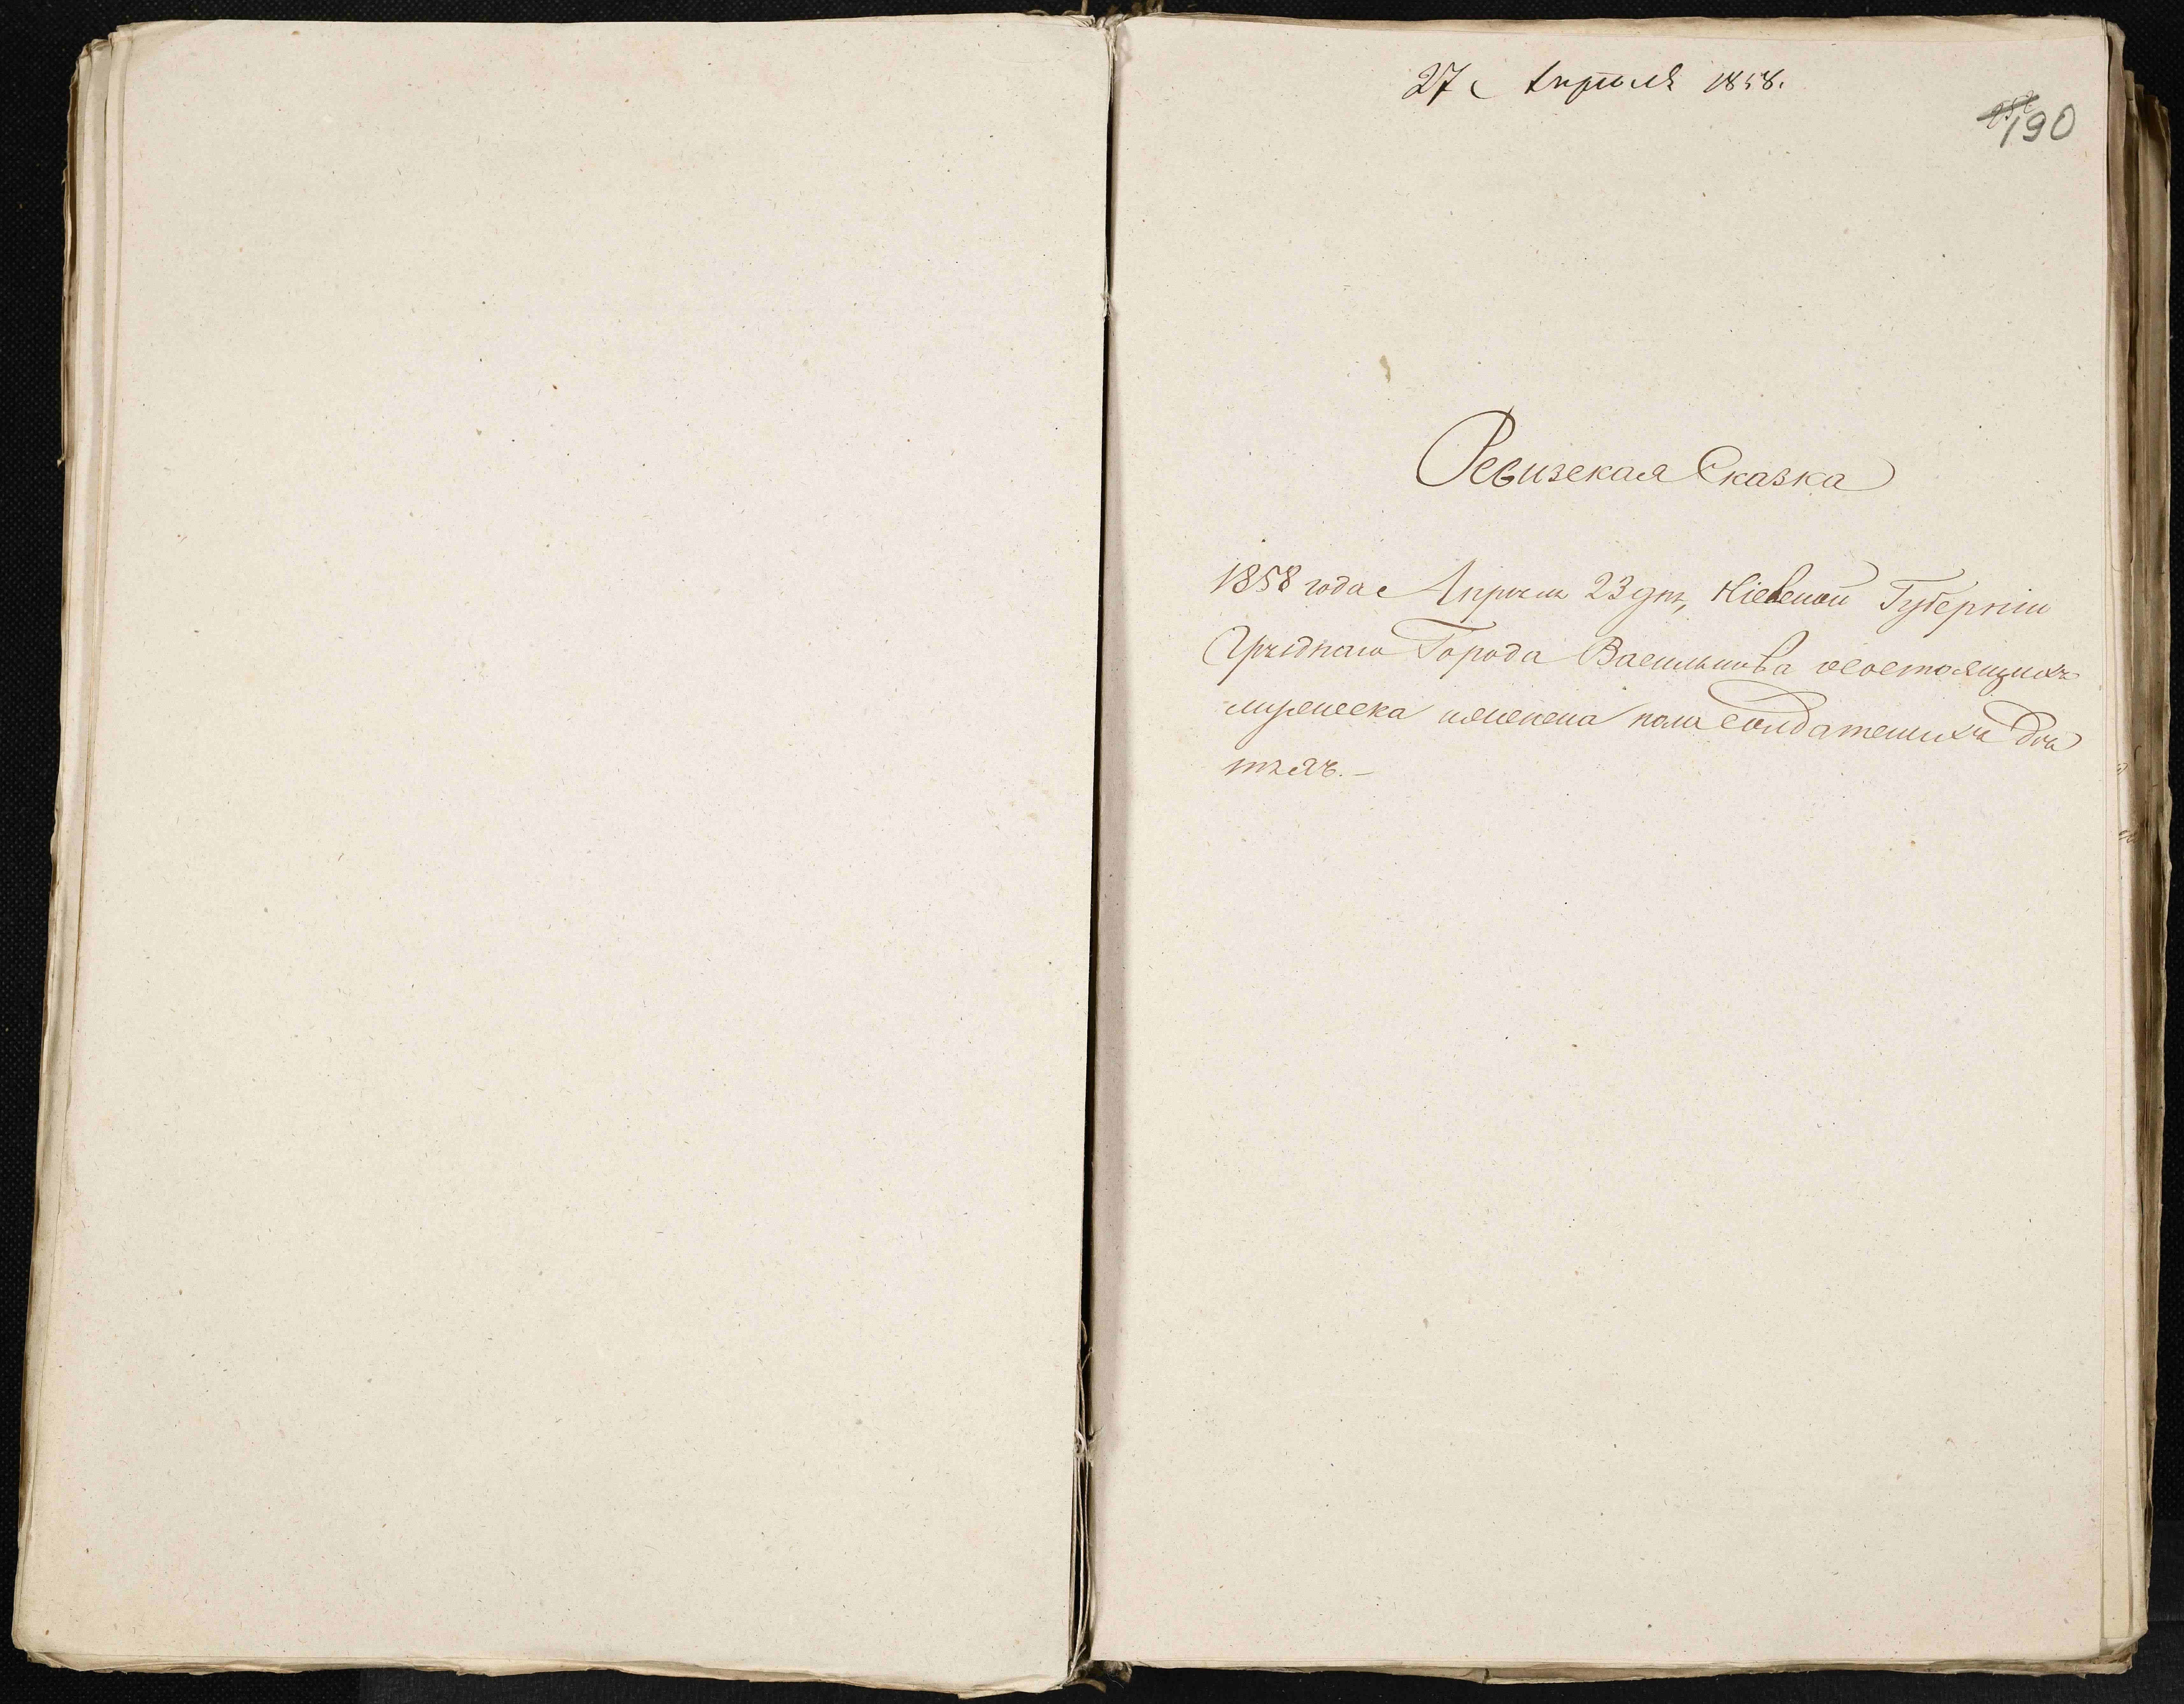 27 Апреля 1858.
190
Ревизская Сказка
1858 года Апреля 23 дня, Кіевской Губерніи
Уѣзднаго Города Василькова о состоящихъ
мужеска и женска пола солдатскихъ дѣ
тяхъ.-